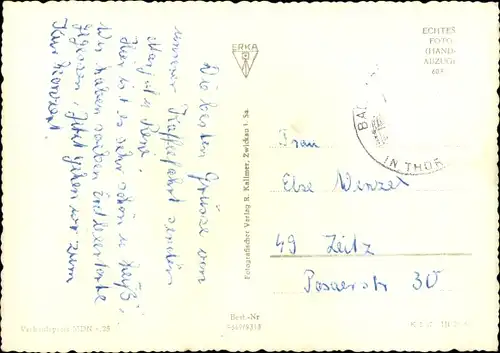 Die besten Grüsse von
unserer Kaffeefahrt senden
Marga u. Rena.
Hier ist es sehr schön u. heiß,
Wir haben soeben Erdbeertorte
gegessen, jetzt gehen wir zum
Kurkonzert.
ERKA
Fotografischer Verlag R. Kallmer, Zwickau i. Sa.
ECHTES
FOTO
(HAND-
ABZUG)
BAD
IN THÜR
Frau
Else Wenzel
49 Zeitz
Posaer str 30
Verkaufspreis MDN -,25
Best.-Nr